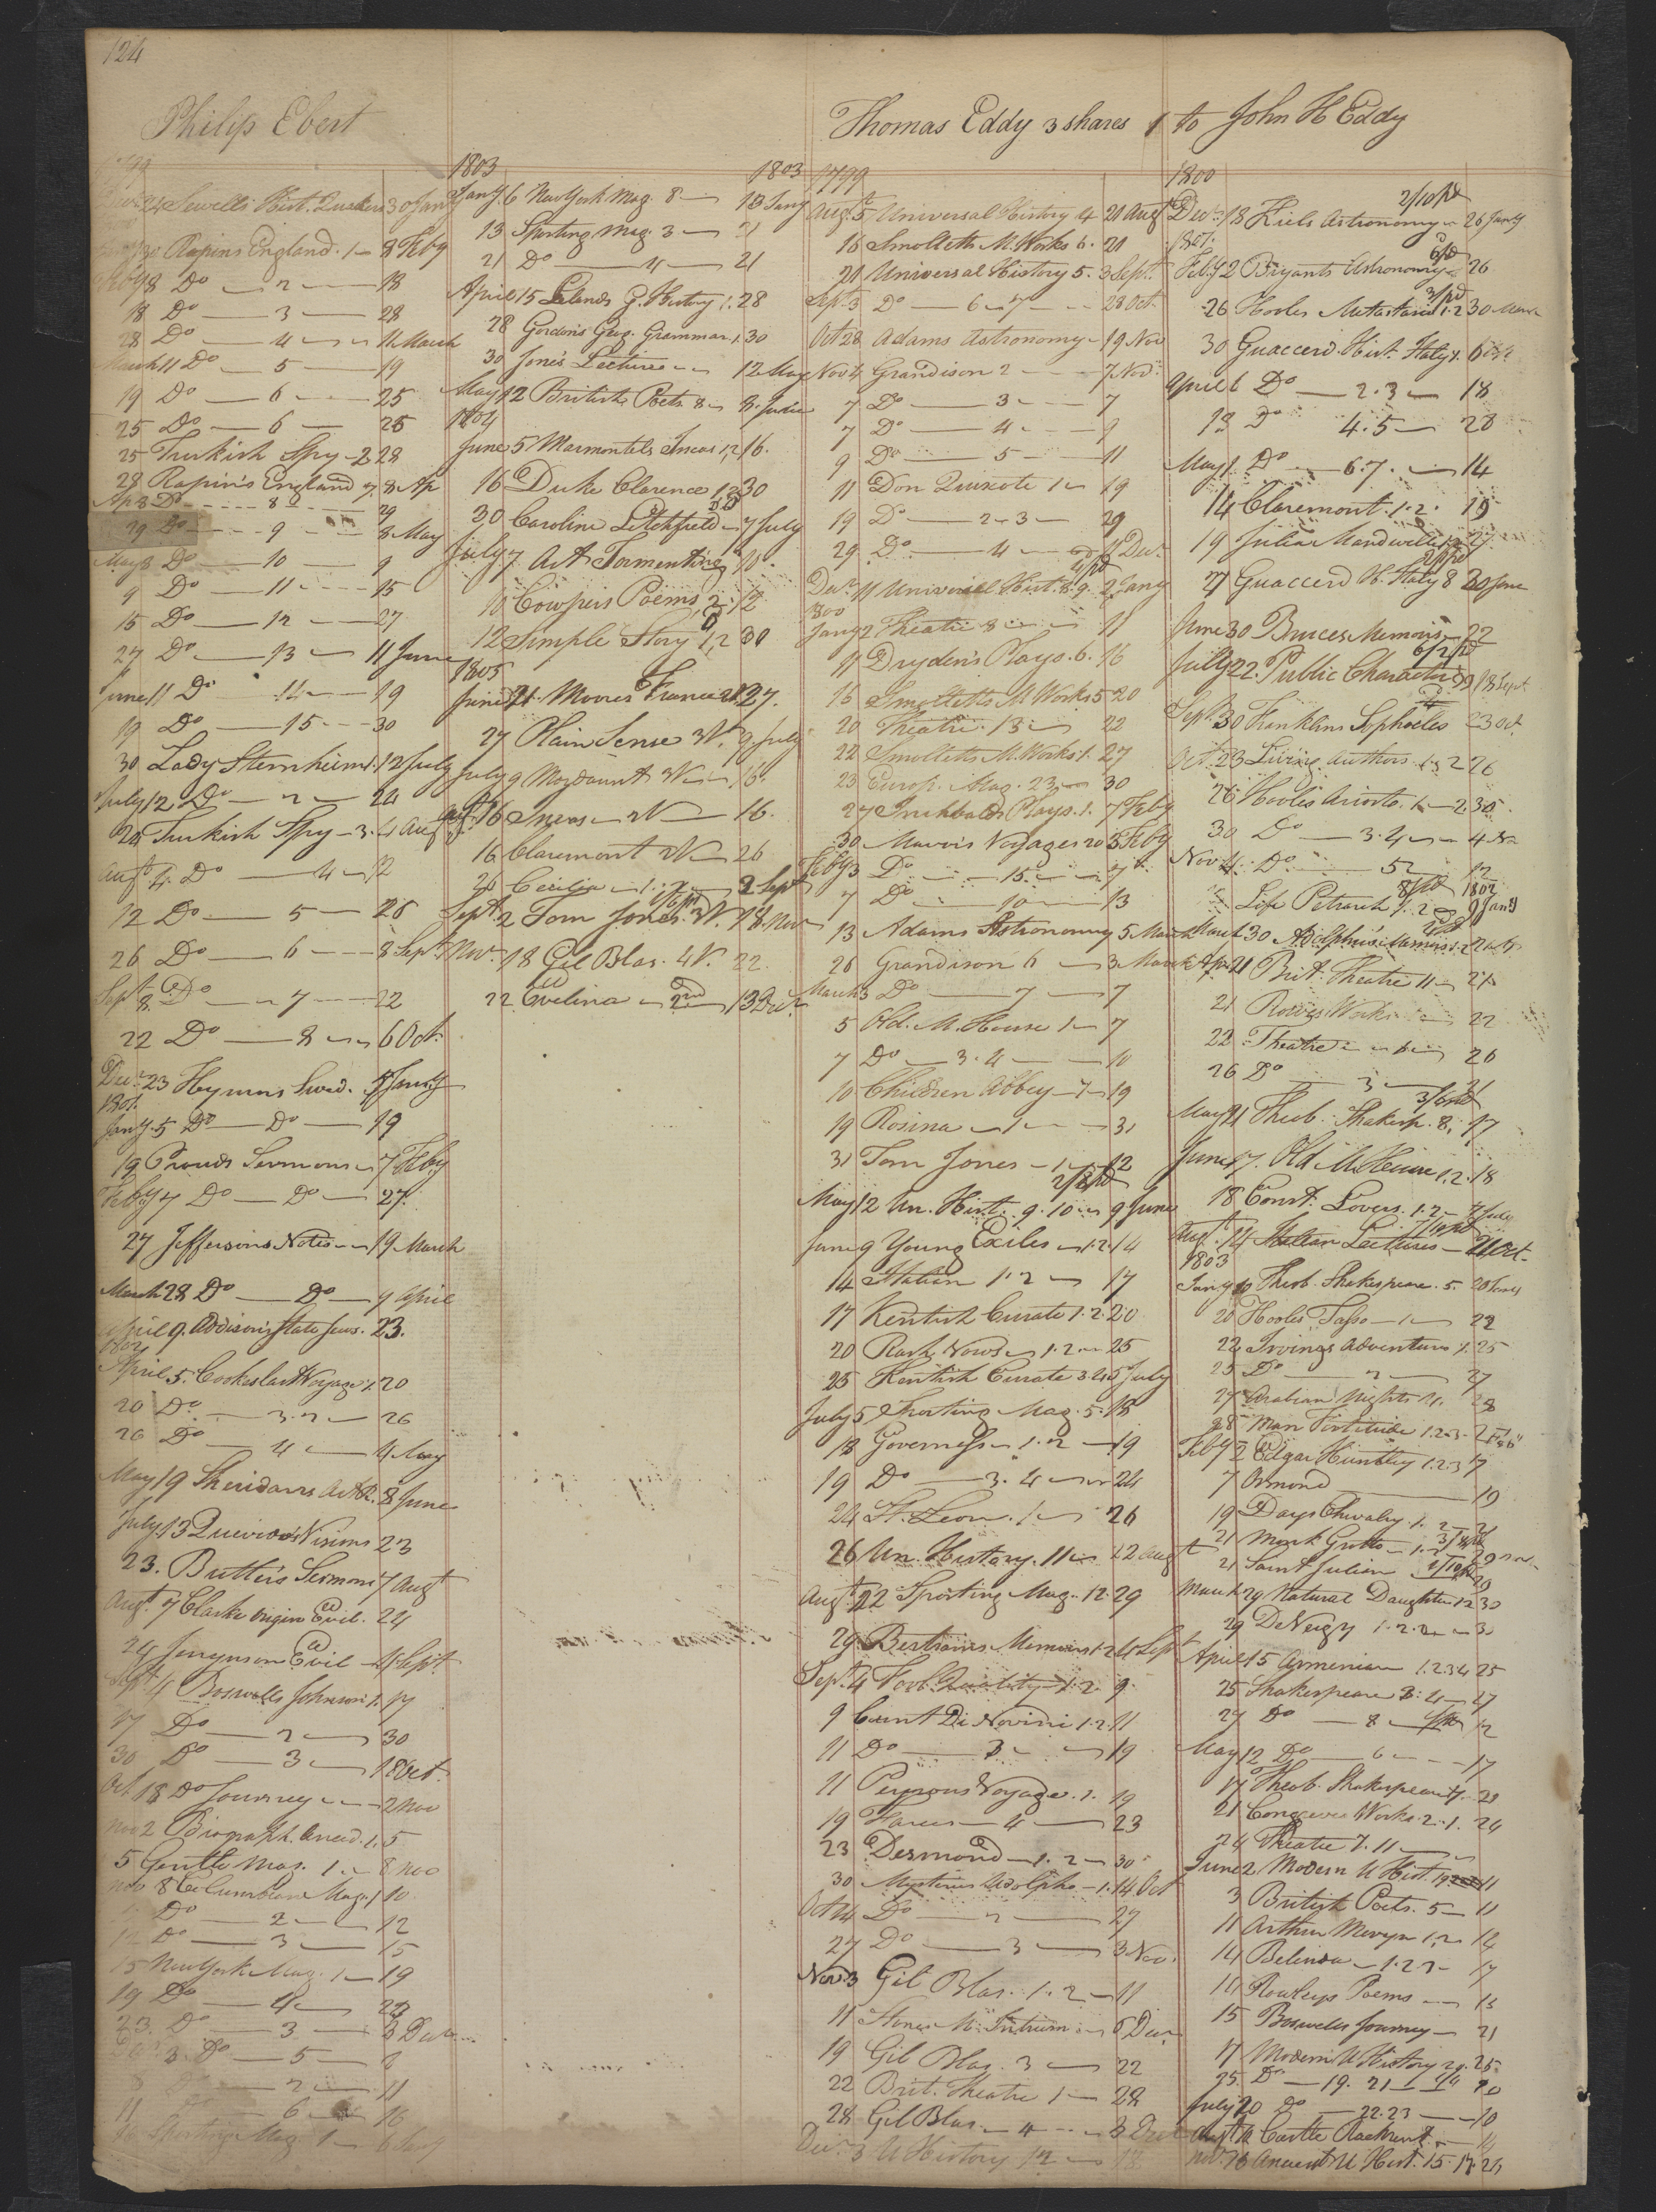 124
Philip Ebert
1799
24 Sewells Hist. Quakers 30 Jany
30 Rapins England. 1 8 Feby
Feby 8 Do 2 18
18 Do 3 28
28 Do 4 11 March
March 11 Do 5 19
19 Do 6 25
25 Do 6 26
25 Turkish Spy 2 28
28 Rapin's England 7. 8 Ap
Ap 8 Do 8 29
29 Do 9 8 May
May 8 Do 10 9
9 Do 11 15
15 Do 12 27
27 Do 13 11 June
June 11 Do 14 19
19 Do 15 30
30 Lady Sternheim 1. 12 July
July 12 Do 2 24
24 Turkish Spy 3. 4 Augt
Augt 4. Do 4 12
12 Do 5 26
26 Do 6 8 Sept
Sept 8 Do 7 22
22 Do 8 6 Oct.
Decr 23 Hymns Swed. 5 Jany
1801.
Jany. 5 Do Do 19
19 Prouds Sermons 7 Feby
Feby 7 Do Do 27.
27 Jeffersons Notes 19 March
March 28 Do Do 9 April
April 9. Addison's State Jews. 23.
1802
April 5. Cookes last Voyage 1. 20
20 Do 3.2 26
26 Do 4 4 May
May 19 Sheridans Art R. 8 June
July 13 Quevedo's Visions 23
23. Butler's Sermons 7 Augt
Augt. 7 Clarke Origin Evil. 24
24 Jenynson Evil 4 Sept
Sept 4 Boswells Johnson 1. 17
17 Do 2 30
30 Do 3 18 Oct.
Oct 18 Do Journey 2 Nov
Nov 2 Biograph. Anecd. 1. 5
5 Gentle Mag. 1. 8 Nov
Nov 8 Columbian Mag. 1 10
Do 2 12
12 Do 3 15
15 New York Mag. 1 19
19 Do 4 23
23. Do 3 3 Decr
3 Do 5 8
Do 2 11
11 6 16
Sporting Mag 1
1803
Jany. 6 New York Mag. 8 13 Jany
13 Sporting Mag. 3 21
21 Do 4 21
April 15 Lelands G. History 1. 28
28 Gordon's Geog. Grammar 1. 30
30 Jone's Lectures 12 May
May 12 British Poets 8 8. June
1804
June 5 Marmontels Incas 1,2 16.
16 Duke Clarence 1,2 30
30 Caroline Litchfield 7 July
July 7 Art Tormenting 10.
10 Cowpers Poems, 2. 12
12 Simple Story 1,2 30
1805
June 21. Moores France 2 V. 27.
27 Plain Sense 3 V. 9 July
July 9 Mordaunt 3 V. 16.
Augt. 16 Incas 2 V 16.
16 Claremont 2 V 26
26 Cecilia 1.2 2 Sept
Sept. 2 Tom Jones. 3 V. 18. Nov
Nov. 18 Gil Blas. 4 V. 22.
22. Evelina 2nd 13 Decr
1803
Thomas Eddy 3 shares 1 to John H Eddy
1799
Augt. 5 Universal History 4 20 Augt
16 Smolletts M. Works 6. 20
21 Universal History 5. 3 Sept.
Sept. 3 Do 6 7 28 Oct.
Oct 28 Adams Astronomy 19 Nov
Nov 4 Grandison 2 7 Nov.
7 Do 3 7
7 Do 4 9
9 Do 5 11
11 Don Quixote 1 19
19 Do 2 3 29
29. Do 4 11 Decr
Decr 11 Universal Hist. 8. 9. 2 Jany
1800
Jany 2 Theatre 8 11
11 Dryden's Plays. 6. 16
16 Smolletts M. Works 5 20
20 Theatre 13 22
22 Smolletts M. Works 1. 27
23 Europ. Mag. 23 30
27 Inchbalds Plays. 1. 7 Feby
30 Mavors Voyages 20 5 Feby
Feby 3 Do 15 7
7 Do 10 13
13 Adams Astronomy 5 March
26 Grandison 6 3 March
March 3 Do 7 7
5 Old. M. House 1 7
7 Do 3.4 10
10 Children Abbey 19
19 Rosina 1 31
31 Tom Jones 1 12
May 12 Un. Hist. 9. 10 9 June
June 9 Young Exiles 1.2. 14
14 Italian 1.2 17
17 Kentish Curate 1.2 20
20 Rash Vows 1.2 25
25 Kentish Curate 3.4 5 July
July 5 Sporting Mag. 5. 18
18 Governess 1.2 19
19 Do 3.4 24
24 St. Leon. 1 26
26 Un. History. 11 22 Augt
Augt. 22 Sporting Mag. 12. 29
29. Bertrams Memoirs 1.2 4 Sept
Sept. 4 Fool Quality 1.2 9
9 Count Di Novini 1.2. 11
11 Do 3 19
11 Perouse Voyage. 1. 19
19 Farces 4 23
23 Desmond 1.2 30
30 Mysteries Udolpho 1. 14 Oct
Oct 14 Do 2 27
27 Do 3 3 Nov.
Nov. 3 Gil Blas. 1. 2 11
19 Gil Blas. 3 22
22 Brit. Theatre 1 28
28 Gil Blas. 4 3 Decr
Decr 3 U History 12 18
1800
Decr. 18 Kiels Astronomy 26 Jany
1801.
Feby 2 Bryants Astronomy 26
26 Hooles Metastasio 1.2 30 March
30 Guaccerd Hist. Italy 1. 6
April 6 Do 2.3 18
18 Do 4.5 28
May 1. Do 6.7. 14
14 Claremont. 1.2. 19
19 Julia Mandeville 27.
27 Guaccerd H. Italy 8 30 June
June 30 Bruces Memoirs 22
July 22. Public Characters 18 Sept.
Sept. 30 Franklins Sophocles 23 Oct.
Oct. 23 Living Authors 1 2 26
26 Hooles Ariosto. 1 2. 30
30 Do 3.4 4 Nov
Nov 4. Do 5 12
1802
Life Petrarch 1. 2 9 Jany
March 30 Adolphus's Memoirs 1.2
Apr 21 Brit. Theatre 11 21
21 Rowes Works 22
22 Theatre 6 26
26 Do 3 21
May 21 Theob. Shakesp. 8. 17
June 17. Old M. House 1.2. 18
18 Const. Lovers. 1.2 7 July
Augt. 14 Italian Lectures 21 Oct.
1803
Jany 10 Theob. Shakespeare. 5. 20
20 Hooles Tasso 1 22
22 Irvings Adventures 1. 25
25 Do 2 27
27 Arabian Nights 28
28 Man Fortitude 1.2.3. 2 Feb
Feby 2 Edgar Huntley 1.2.3 7
7 Ormond 19
19 Days Chivalry 1. 2 21
21 Monk Grotto 1.2
21 Saint Julian 20
March 29 Natural Daughter 1 2 30
29 De Vergy 1.2.
April 15 Armenian 1.2.3.4 25
25 Shakespeare 3. 4 27
27 Do 8 12
May 12 Do 6 17
17 Theob. Shakespeare 7. 21
21 Congreves Works. 2. 1. 24
24 Theatre 1. 11
June 2. Modern U Hist. 19 11
3 British Poets. 5 11
11 Arthur Mervyn 1.2 14
14 Belinda 1.2.3 17
14 Rowleys Poems 15
15 Boswells Journey 21
17 Modern U History 20. 25
25. Do 19. 21
July 20 Do 22.23 10
Augt 10 Castle Rackrent 14
Nov. 16 Ancient U Hist. 15. 17. 26